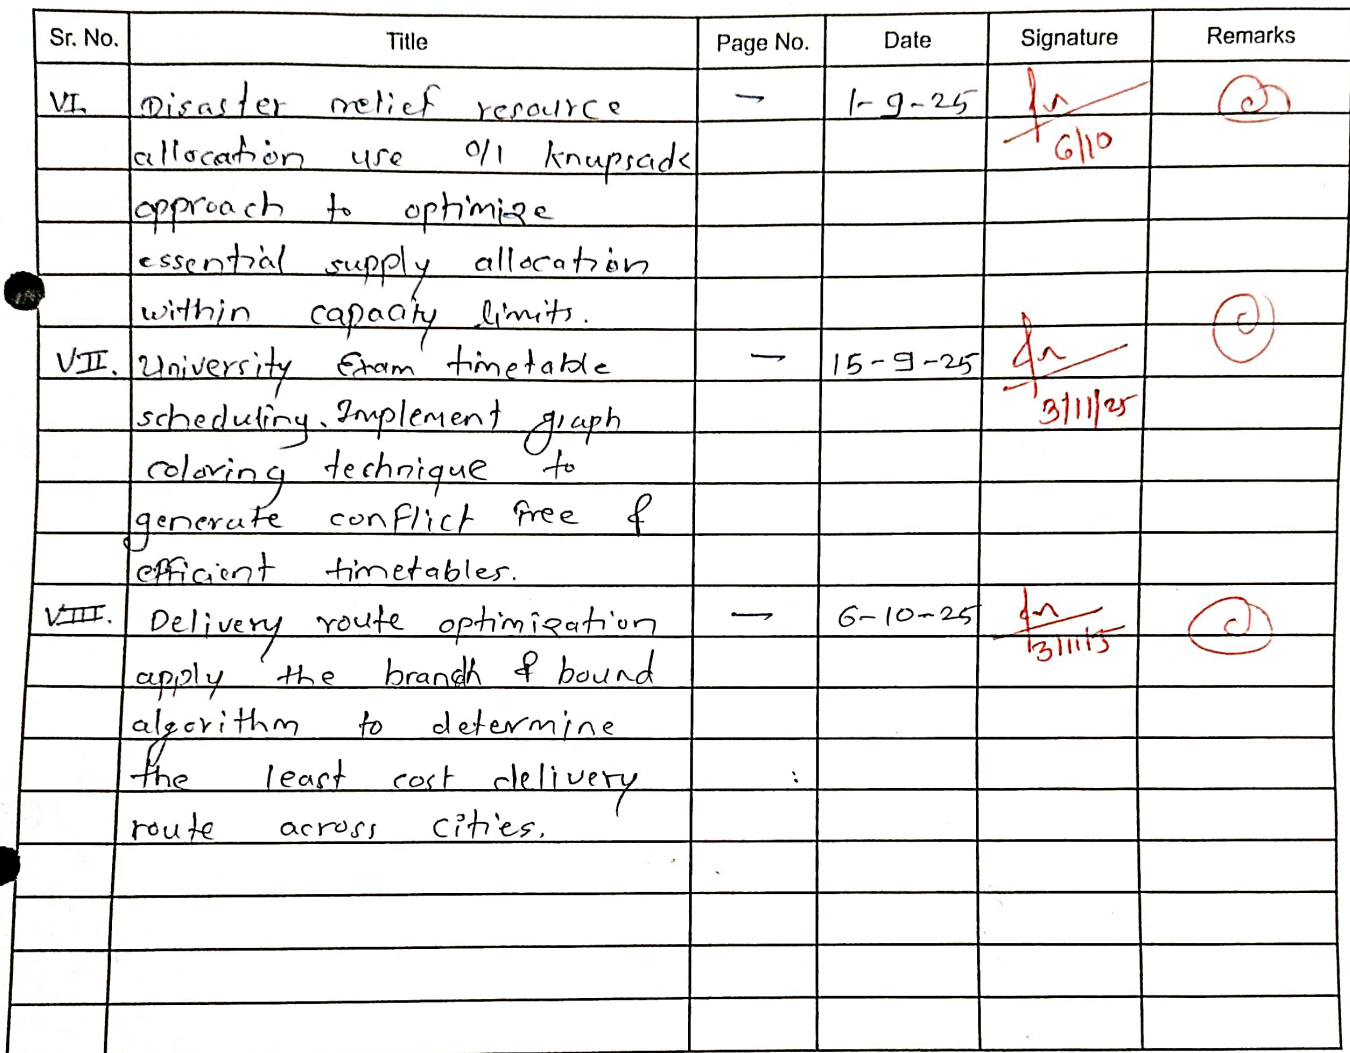 Sr. No. Title Page No. Date Signature Remarks
VI. Disaster relief resource — 1-9-25
allocation use 0/1 knupsack 6/10
approach to optimize
essential supply allocation
within capacity limits.
VII. University Exam timetable — 15-9-25
scheduling. Implement graph 3/11/25
coloring technique to
generate conflict free &
efficient timetables.
VIII. Delivery route optimization — 6-10-25
apply the branch & bound
algorithm to determine
the least cost delivery
route across cities.